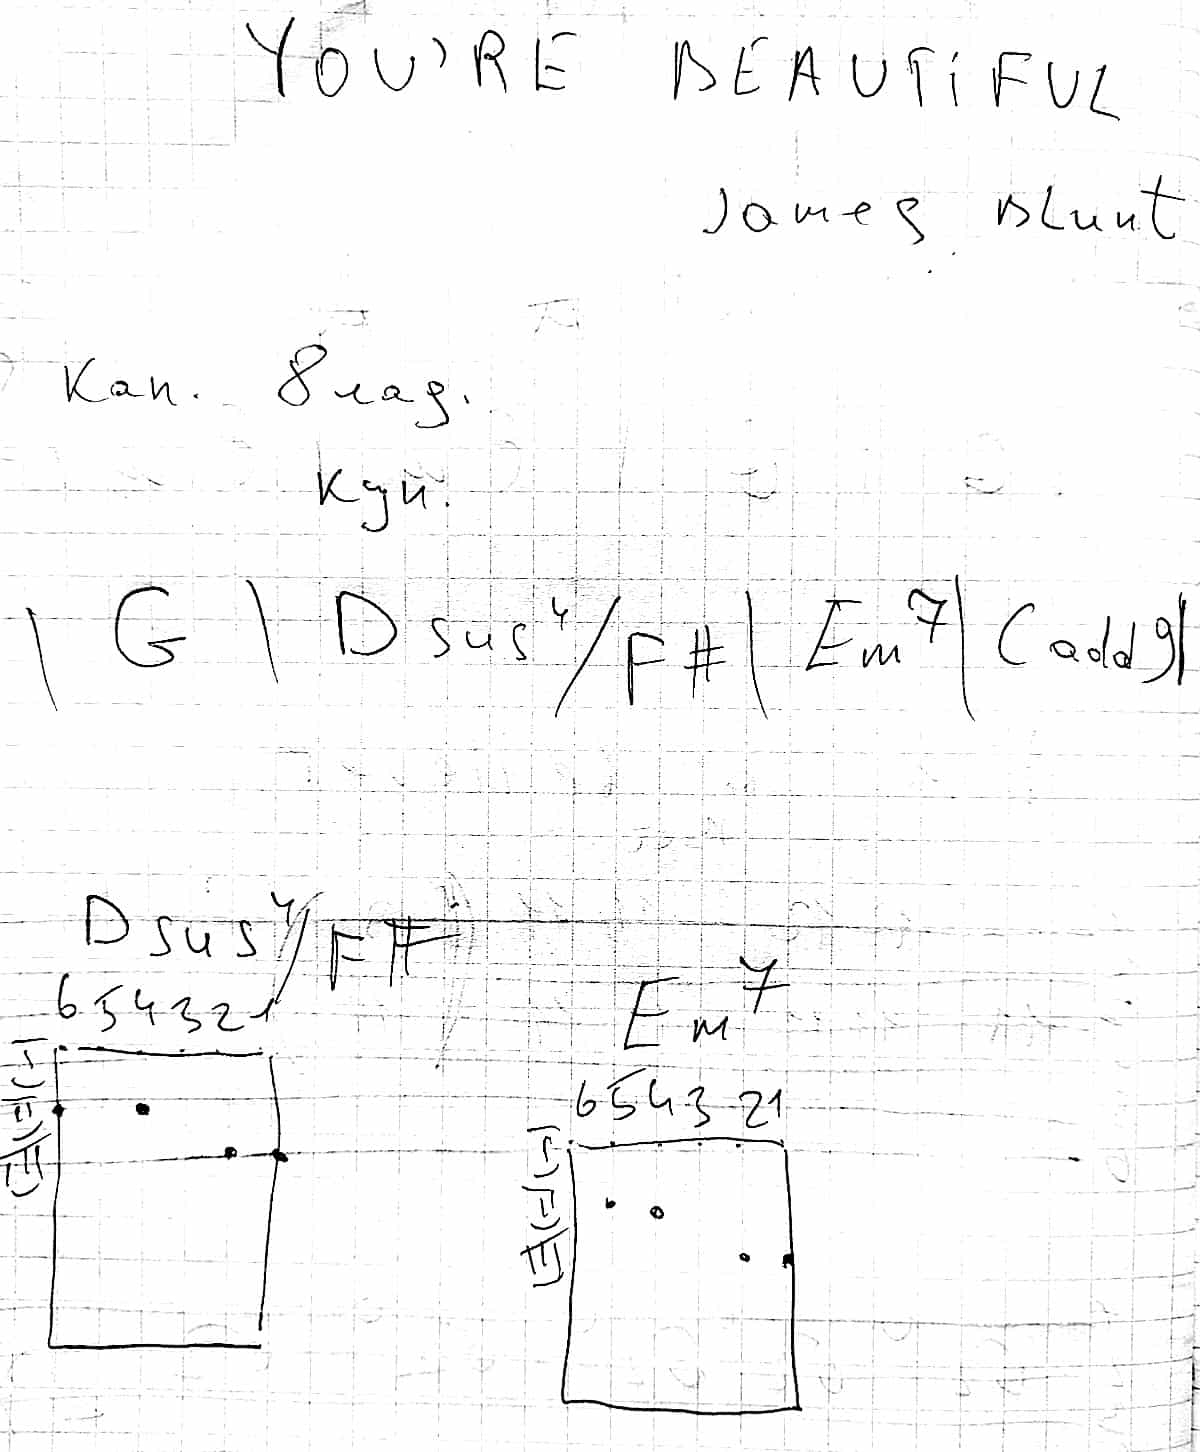 YOU'RE BEAUTIFUL
James Blunt
Кап. 8 лад.
Куп.
| G | Dsus4/F# | Em7 | Cadd9 |
Dsus4/F#
654321
I
II
III
Em7
654321
I
II
III